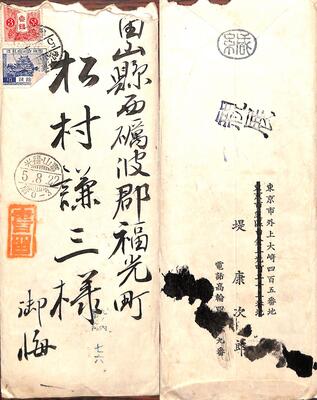 富山縣西礪波郡福光町
松村謙三様
御悔
書留
5.8.22
七六
緘
親展
東京市外上大崎四百五番地
堤康次郎
電話高輪四 九番